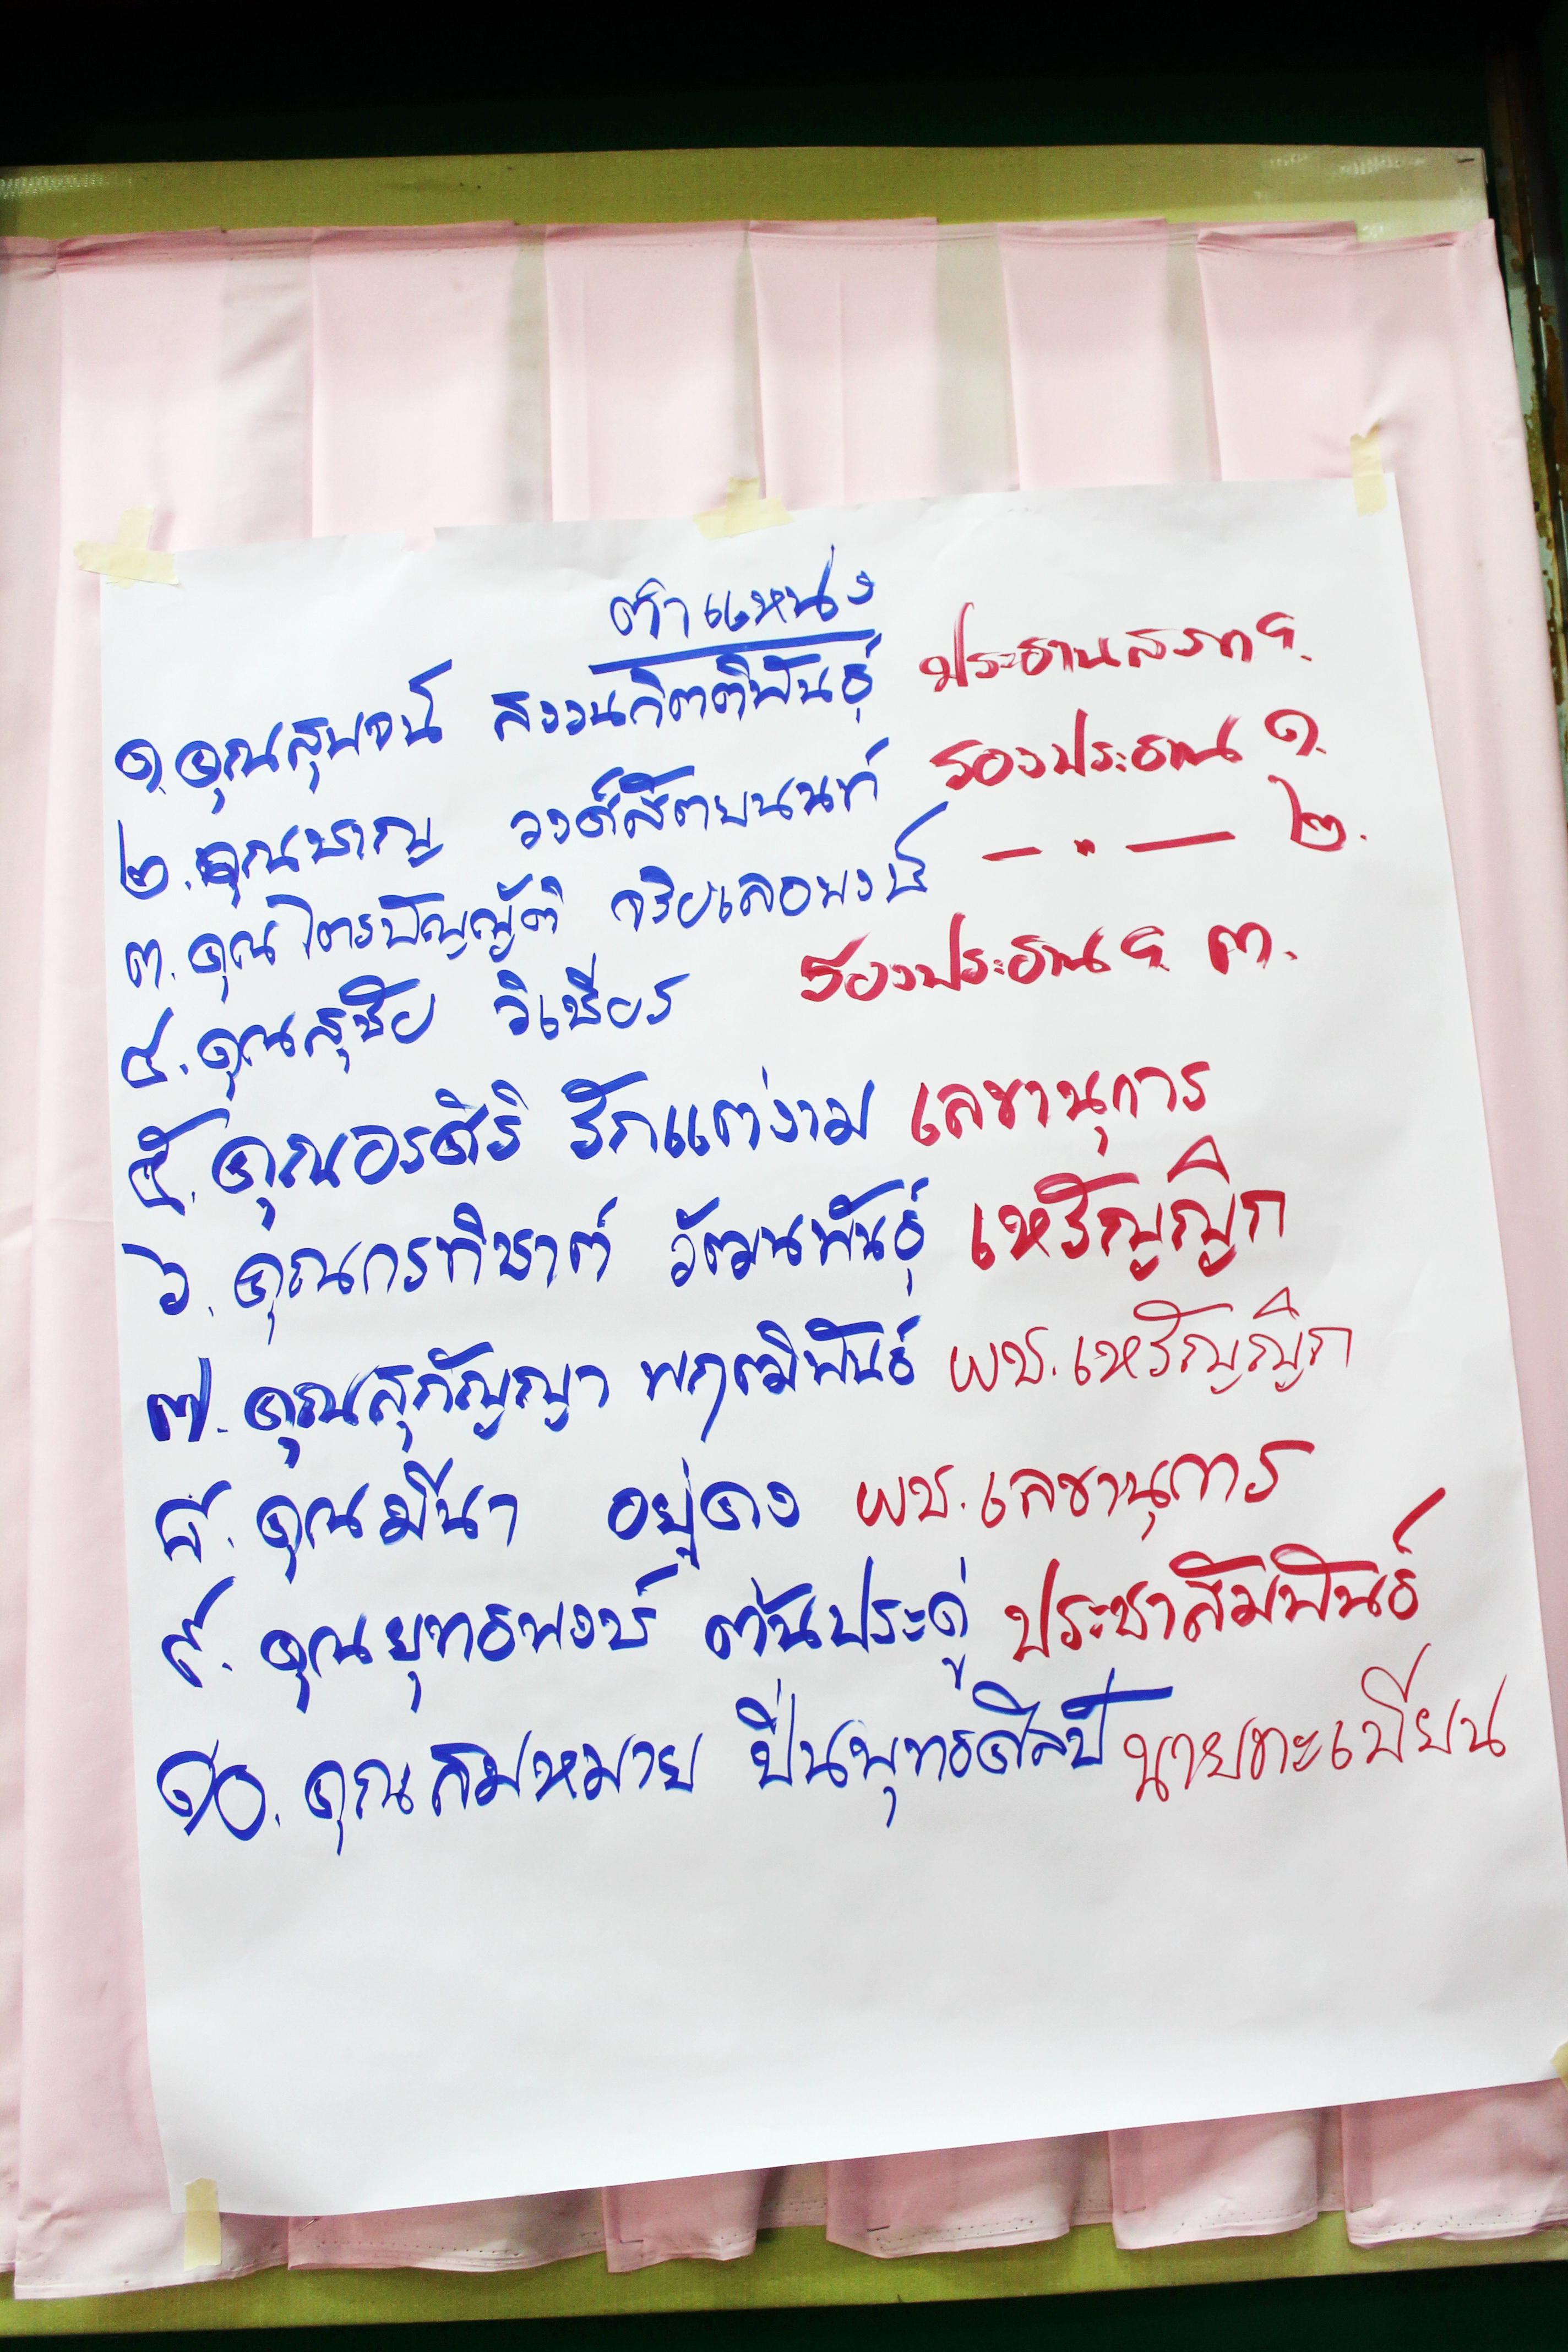 ตำแหน่ง
๑. คุณสุพจน์ สงวนกิตติพันธุ์ ประธานสภาฯ
๒. คุณชาญ วงศ์สัตยนนท์ รองประธาน ๑.
๓. คุณไตรบัญญัติ จริยเลอพงษ์ — " — ๒.
๔. คุณสุชัย วิเชียร รองประธานฯ ๓.
๕. คุณอรศิริ รักแต่งาม เลขานุการ
๖. คุณกรทิชาต์ วัฒนพันธุ์ เหรัญญิก
๗. คุณสุกัญญา พฤฒิพันธ์ ผช.เหรัญญิก
๘. คุณมีนา อยู่คง ผช.เลขานุการ
๙. คุณยุทธพงษ์ ต้นประดู่ ประชาสัมพันธ์
๑๐. คุณสมหมาย ปิ่นพุทธศิลป์ นายทะเบียน